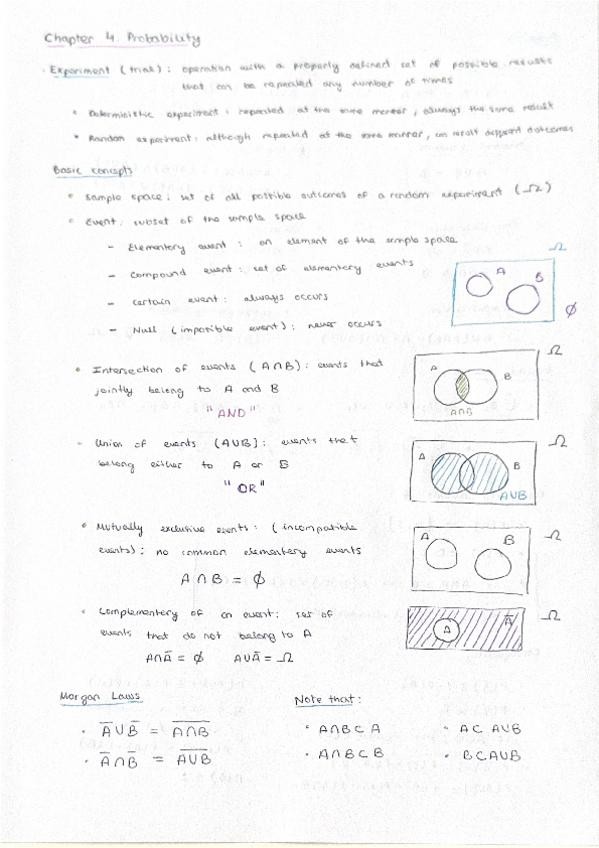 Chapter 4. Probability
· Experiment (trial): operation with a properly defined set of possible results
that can be repeated any number of times
• Deterministic experiment: repeated at the same manner, always the same result
• Random experiment: although repeated at the same manner, can result different outcomes
Basic concepts
• Sample space: set of all possible outcomes of a random experiment (Ω)
• Event: subset of the sample space
- Elementary event: an element of the sample space
- Compound event: set of elementary events
- Certain event: always occurs
- Null (impossible event): never occurs
Ω
A
B
∅
• Intersection of events (A∩B): events that
jointly belong to A and B
"AND"
Ω
A
B
A∩B
· Union of events (A∪B): events that
belong either to A or B
"OR"
Ω
A
B
A∪B
• Mutually exclusive events: (incompatible
events): no common elementary events
A∩B = ∅
Ω
A
B
• Complementary of an event: set of
events that do not belong to A
A∩A̅ = ∅ A∪A̅ = Ω
Ω
A
A̅
Morgan Laws
· A̅ ∪ B̅ = A̅∩̅B̅
· A̅ ∩ B̅ = A̅∪̅B̅
Note that:
· A∩B ⊂ A · A ⊂ A∪B
· A∩B ⊂ B · B ⊂ A∪B